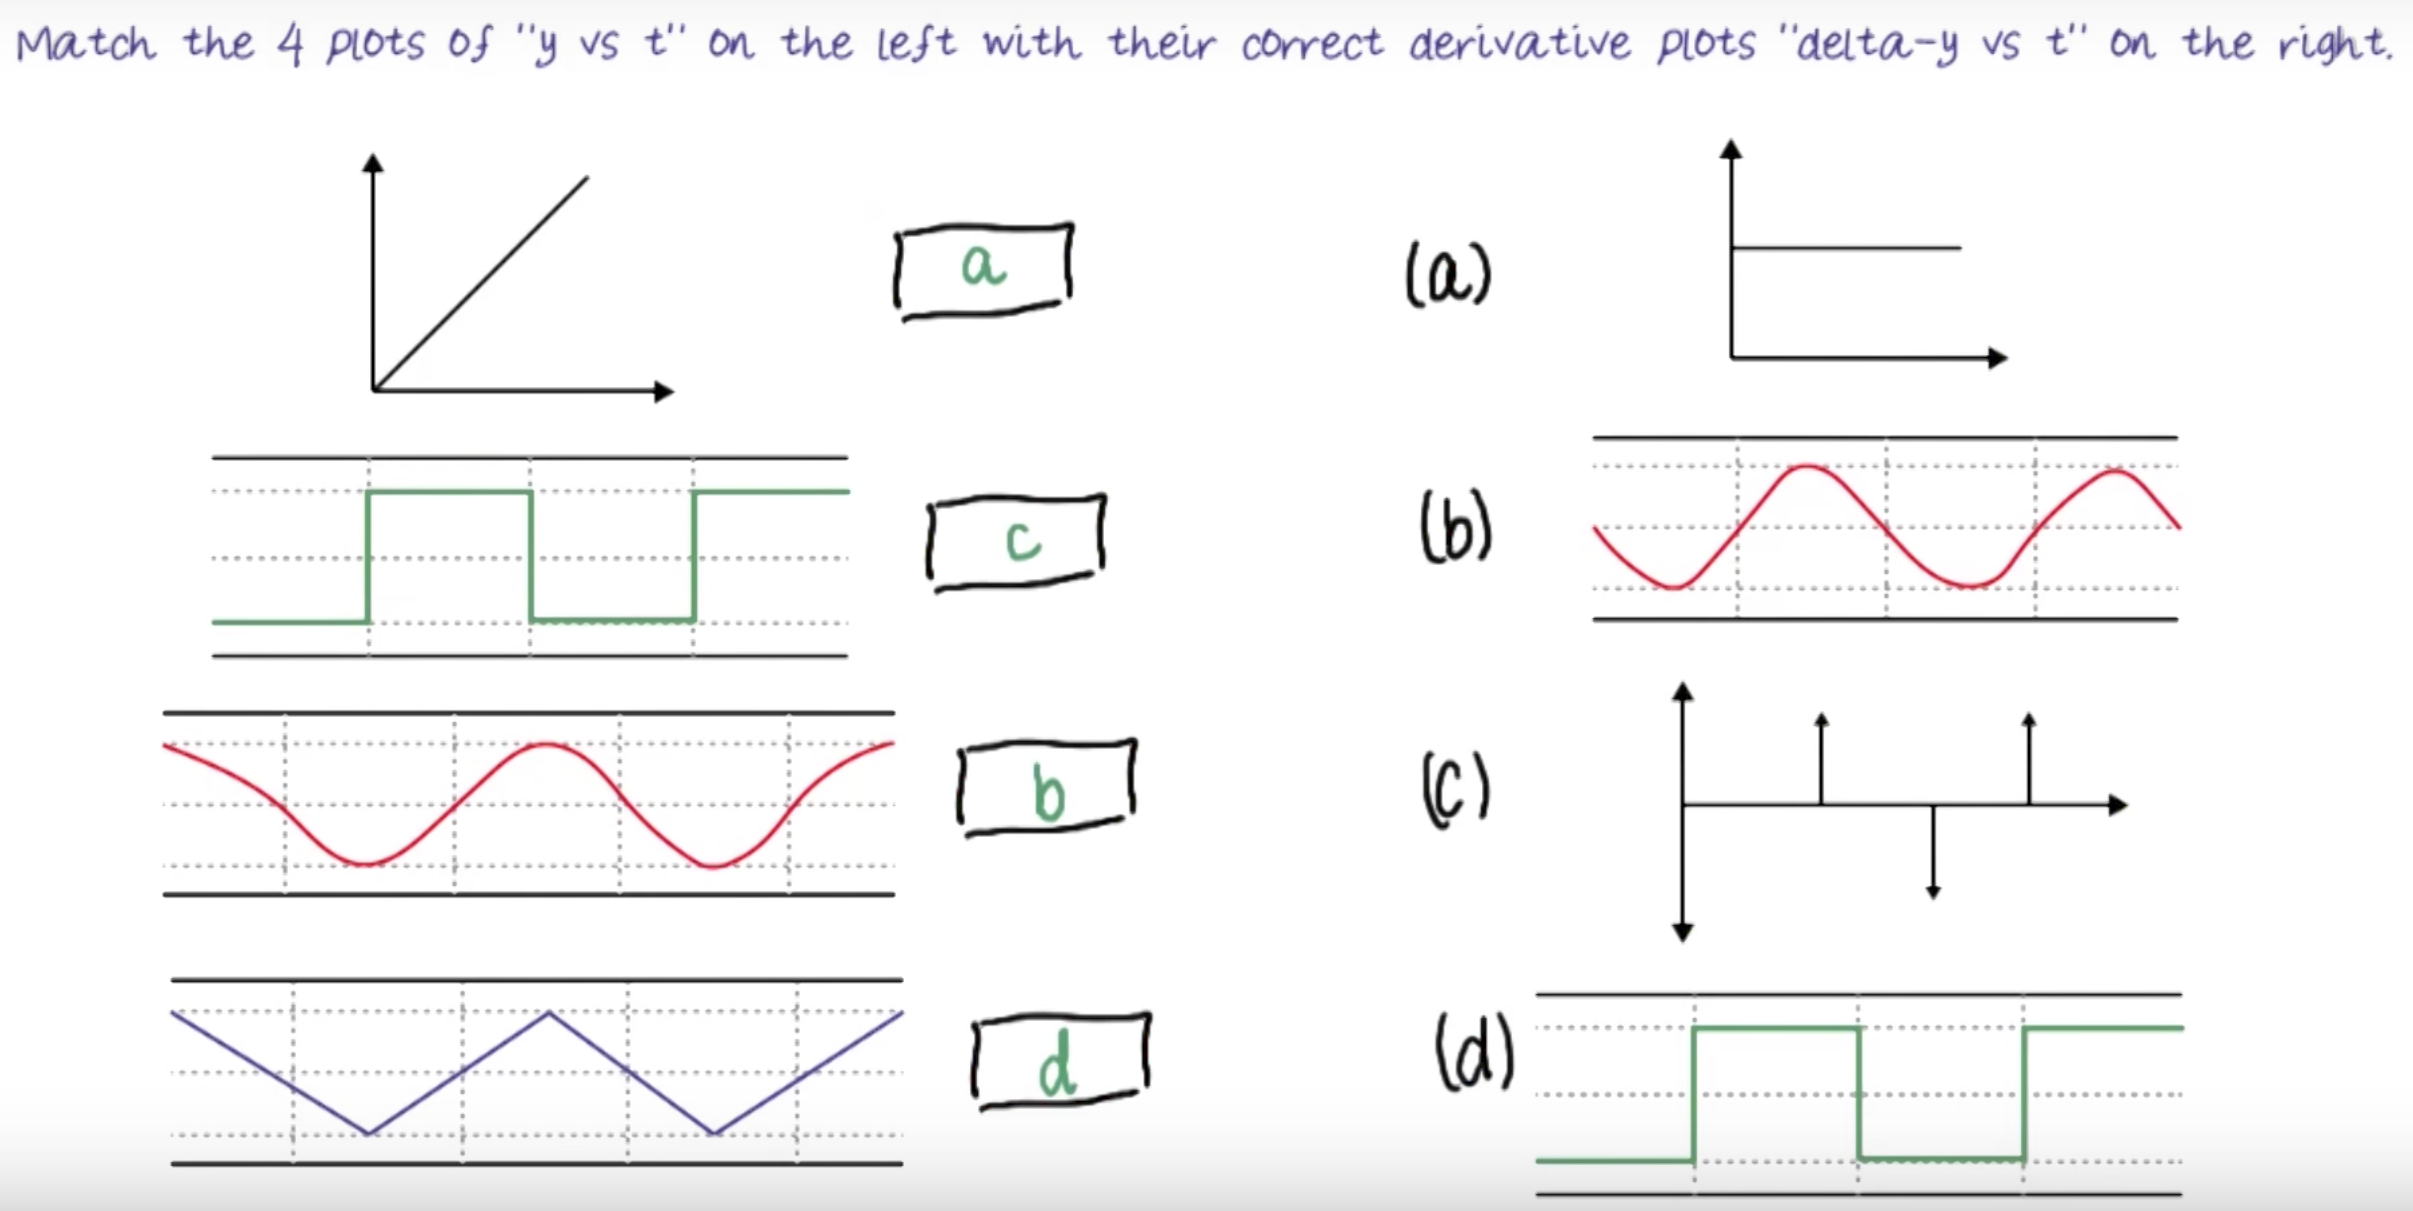 Match the 4 plots of "y vs t" on the left with their correct derivative plots "delta-y vs t" on the right.
a
(a)
c
(b)
b
(c)
d
(d)